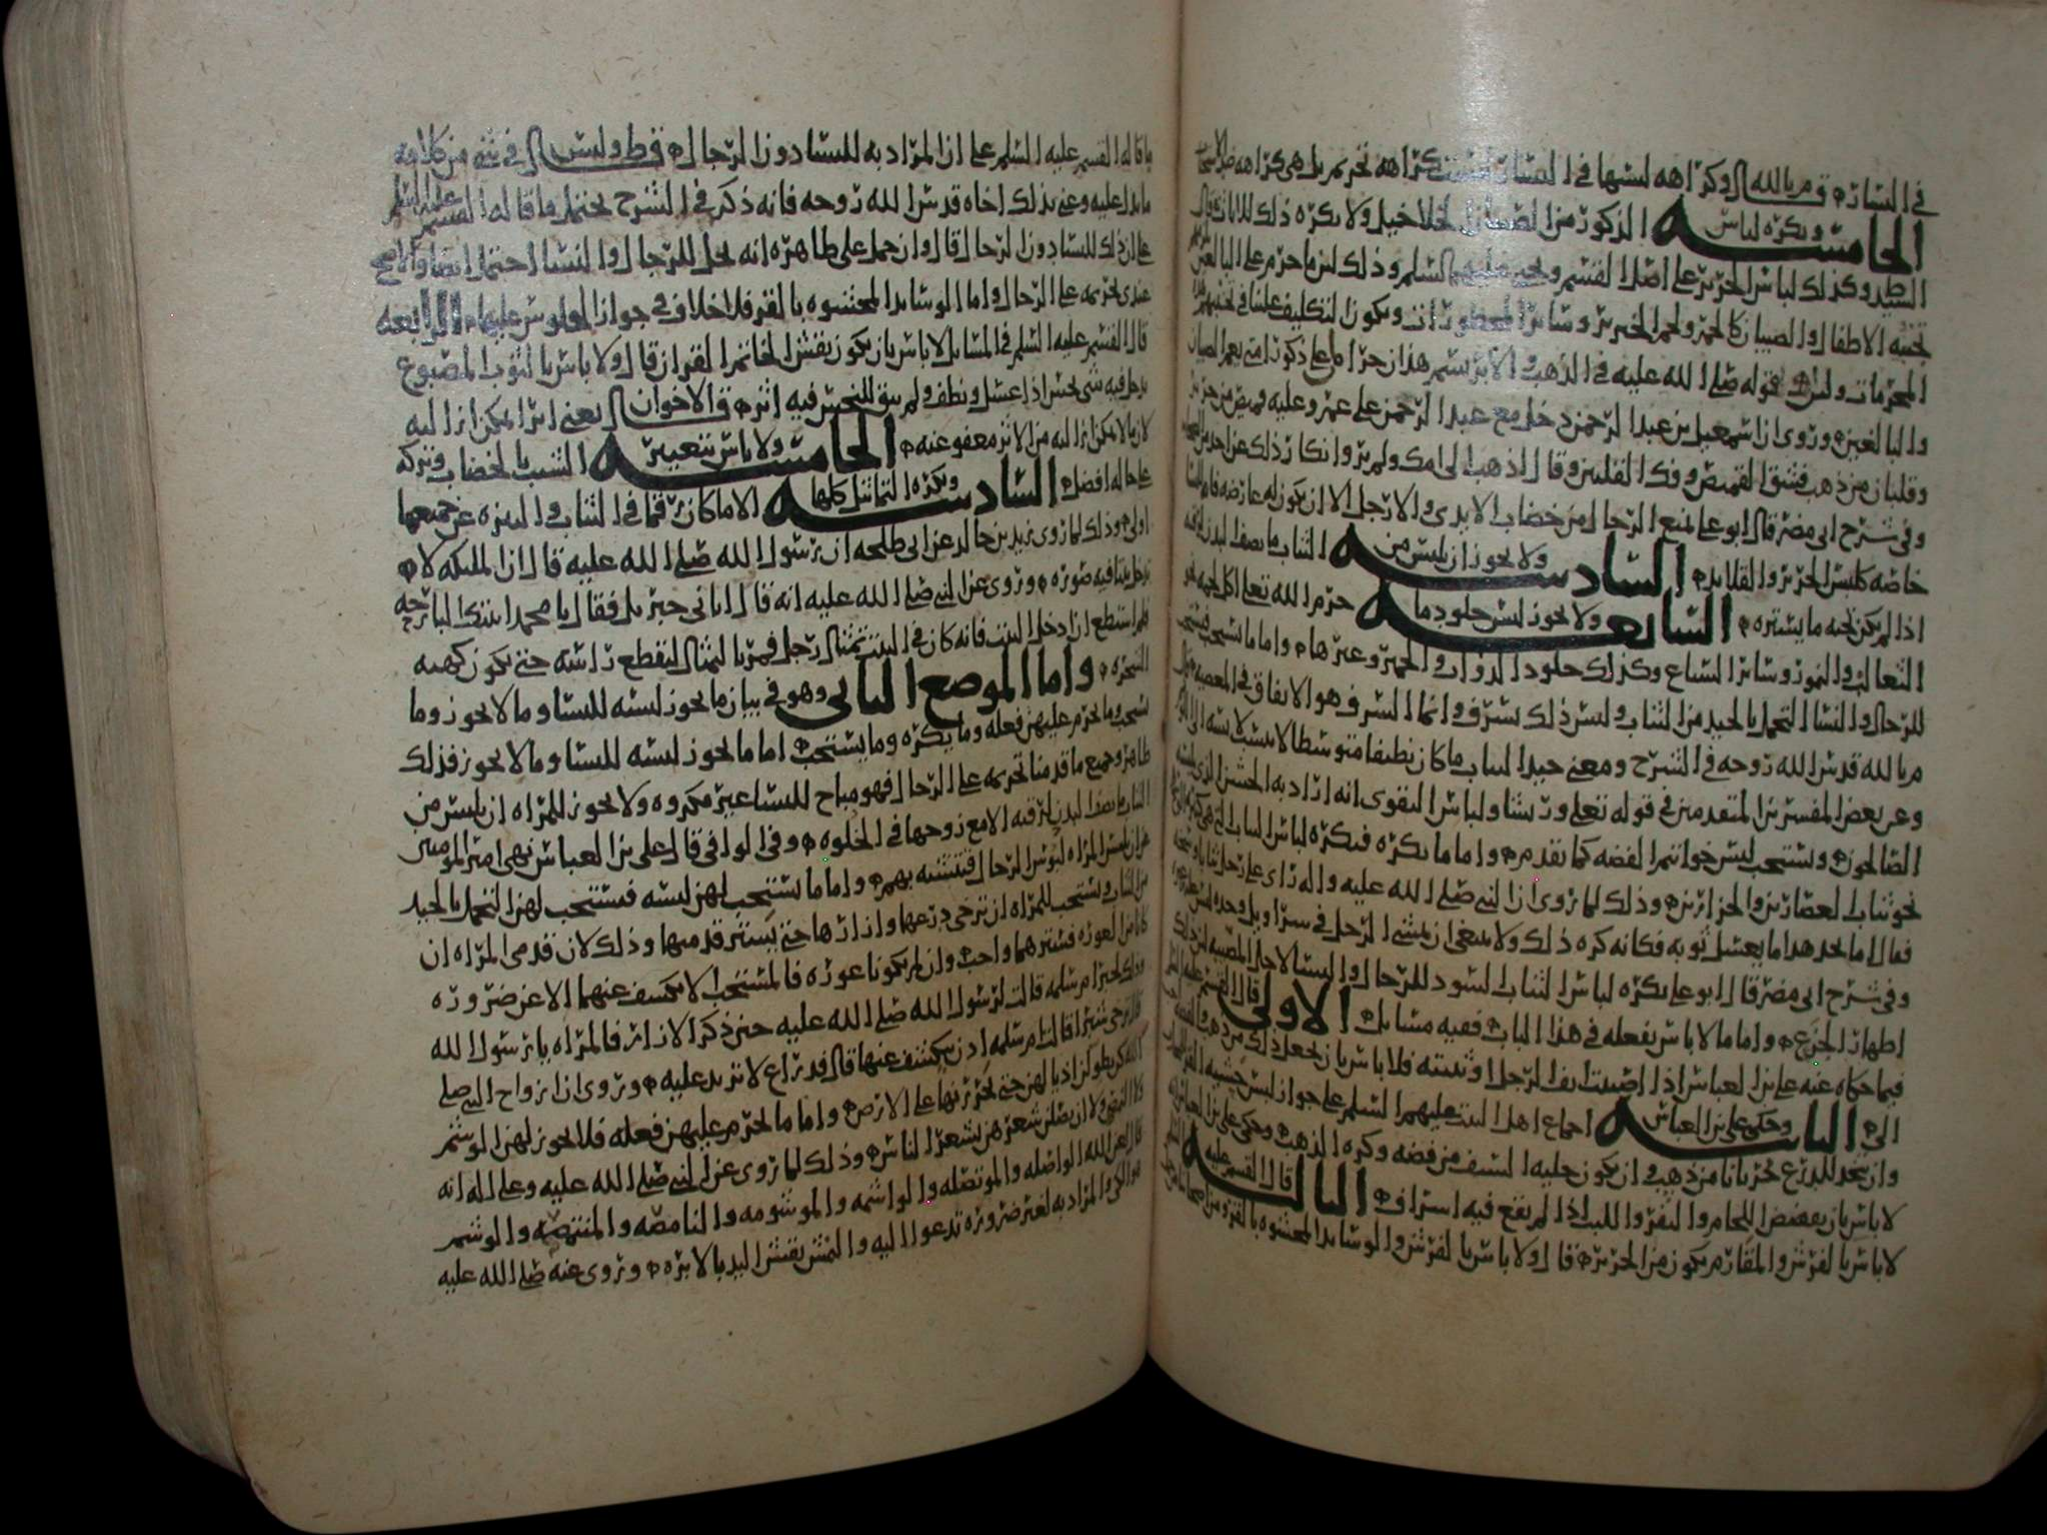 في النساء قال م بالله وكراهه لبسها في الصلاة ليست كراهه تحريم بل هي كراهه ضد الاستحباب
الخامسه ويكره لباس الذكور من الصبيان الخلاخيل ولا يكره ذلك للاناث قال
السيد ط وكذلك لباس الحرير على اصل القسم ويحيى عليهما السلم وذلك لان ما حرم على البالغين
تجنبه الاطفال والصبيان كالخمر ولحم الخنزير وسائر المحظورات ويكون التكليف علينا في تجنيبهم
المحرمات ولان قوله صلى الله عليه في الذهب والابريسم هذان حرام على ذكور امتي يعم الصبيان
والبالغين وروي ان اسمعيل بن عبد الرحمن دخل مع عبد الرحمن على عمر وعليه قميص من حرير
وقلبان من ذهب فشق القميص وفك القلبين وقال اذهب الى امك ولم يرو انكار ذلك عن احد من الصحابه
وفي شرح ابي مضر قال ابو علي لمنع الرجال من خضاب الايدي والارجل الا ان يكون له عارضه فاما النساء
خاصه كلبس الحرير والقلايد السادسه ولا يجوز ان يلبس من الثياب ما يصف البدن لرقته
اذا لم يكن تحته ما يستره السابعه ولا يجوز لبس جلود ما حرم الله تعالى اكل لحمه نحو
الثعالب والنمور وسائر السباع وكذلك جلود الدواب والحمير وغيرها واما ما يستحب فيستحب
للرجال والنساء التجمل بالجيد من الثياب وليس ذلك بسرف وانما السرف هو الانفاق في المعصيه قال
م بالله قدس الله روحه في الشرح ومعنى جيد الثياب ما كان نظيفا متوسطا لا ينسب لابسه الى
وعن بعض المفسرين المتقدمين في قوله تعلى وريشا ولباس التقوى انه اراد به الخشن الذي يلبسه
الصالحون ويستحب لبس خواتم الفضه كما تقدم واما ما يكره فيكره لباس الثياب التي
نحو ثياب العصارين والجزارين وذلك لما روي ان النبي صلى الله عليه واله راى على رجل ثيابا وسخه
فقال اما يجد هذا ما يغسل ثوبه فكانه كره ذلك ولا ينبغي ان يمشي الرجل في سراويل وحده
وفي شرح ابي مضر قال ابو علي يكره لباس الثياب السود للرجال والنساء لاجل المصيبه لان ذلك
اظهار الجزع واما ما لا باس بفعله في هذا الباب ففيه مسائل الاولى قال القسم عليه السلم
فيما حكاه عنه علي بن العباس اذا اصيبت انف الرجل او ثنيته فلا باس بان يجعل ذلك من ذهب او فضه
الثانيه وحكى علي بن العباس اجماع اهل البيت عليهم السلم على جواز لبس خشبه
وان يتخذ للدرع نحر بانا من ذهب وان يكون حليه السيف من فضه وكره الذهب وحكى علي بن العباس
لا باس بان يفضض اللجام والثفر واللبب اذا لم يقع فيه اسراف الثالثه قال القسم عليه
لا باس بالفرش والمقارم يكون من الحرير قال ولا باس بالفرش والوسائد المحشوه بالقز ومن اصحابنا من
ما قاله القسم عليه السلم على ان المراد به للنساء دون الرجال قال ط وليس في شي من كلامه
ما يدل عليه وعنى بذلك اخاه قدس الله روحه فانه ذكر في الشرح يحتمل ما قاله القسم عليه السلم
على ان ذلك للنساء دون الرجال قال وان حمل على ظاهره انه يحل للرجال والنساء احتمل ايضا والاصح
عندي تحريمه على الرجال واما الوسائد المحشوه بالقز فلا خلاف في جواز الجلوس عليها الرابعه
قال القسم عليه السلم في المسائل لا باس بان يكون نقش الخاتم القران قال ولا باس بالثوب المصبوغ
يدخل فيه شي نجس اذا غسل ونظف ولم يبق للنجس فيه اثر قال الاخوان يعني اثرا يمكن ازالته
لان ما لا يمكن ازالته من الاثر معفو عنه الخامسه ولا باس بتغيير الشيب بالخضاب وتركه
على حاله افضل السادسه ويكره التماثيل كلها الا ما كان رقما في الثياب والتنزه عن جميعها
اولى وذلك لما روى زيد بن خالد عن ابي طلحه ان رسول الله صلى الله عليه قال ان الملئكه لا
تدخل بيتا فيه صوره وروي عن النبي صلى الله عليه انه قال اتاني جبريل فقال يا محمد اتيتك البارحه
فلم استطع ان ادخل البيت فانه كان في البيت تمثال رجل فمر بالتمثال ليقطع راسه حتى يكون كهيه
الشجره واما الموضع الثاني وهو في بيان ما يجوز لبسه للنساء وما لا يجوز وما
يستحب وما يحرم عليهن فعله وما يكره وما يستحب اما ما يجوز لبسه للنساء وما لا يجوز فذلك
ظاهر وجميع ما قدمنا تحريمه على الرجال فهو مباح للنساء غير مكروه ولا يجوز للمراه ان يلبس من
الثياب ما يصف البدن لرقته الا مع زوجها في الخلوه وفي الوافي قال علي بن العباس نهى امير المومنين
عن ان يلبس المراه لبوس الرجال فتتشبه بهم واما ما يستحب لهن لبسه فيستحب لهن التجمل بالجيد
من الثياب ويستحب للمراه ان ترخي درعها وازارها حتى يستتر قدميها وذلك لان قدمي المراه ان
كانا من العوره فسترهما واجب وان لم يكونا عوره فالمستحب لا يكشف عنهما الا عن ضروره
وذلك لخبر ام سلمه قالت لرسول الله صلى الله عليه حين ذكر الازار فالمراه يا رسول الله
قال ترخي شبرا قالت ام سلمه اذن ينكشف عنها قال فذراع لا تزيد عليه وروي ان ازواج النبي صلى
الله عليه كن يطولن اذيالهن حتى يجررنها على الارض واما ما يحرم عليهن فعله فلا يجوز لهن الوشم
ولا ان يصلن شعرهن بشعر الناس وذلك لما روي عن النبي صلى الله عليه وعلى اله انه
قال لعن الله الواصله والموتصله والواشمه والموشومه والنامصه والمنتمصه والوشم
المراد به لغير ضروره تدعوا اليه والنقش بنقش اليد بالابره وروي عنه صلى الله عليه